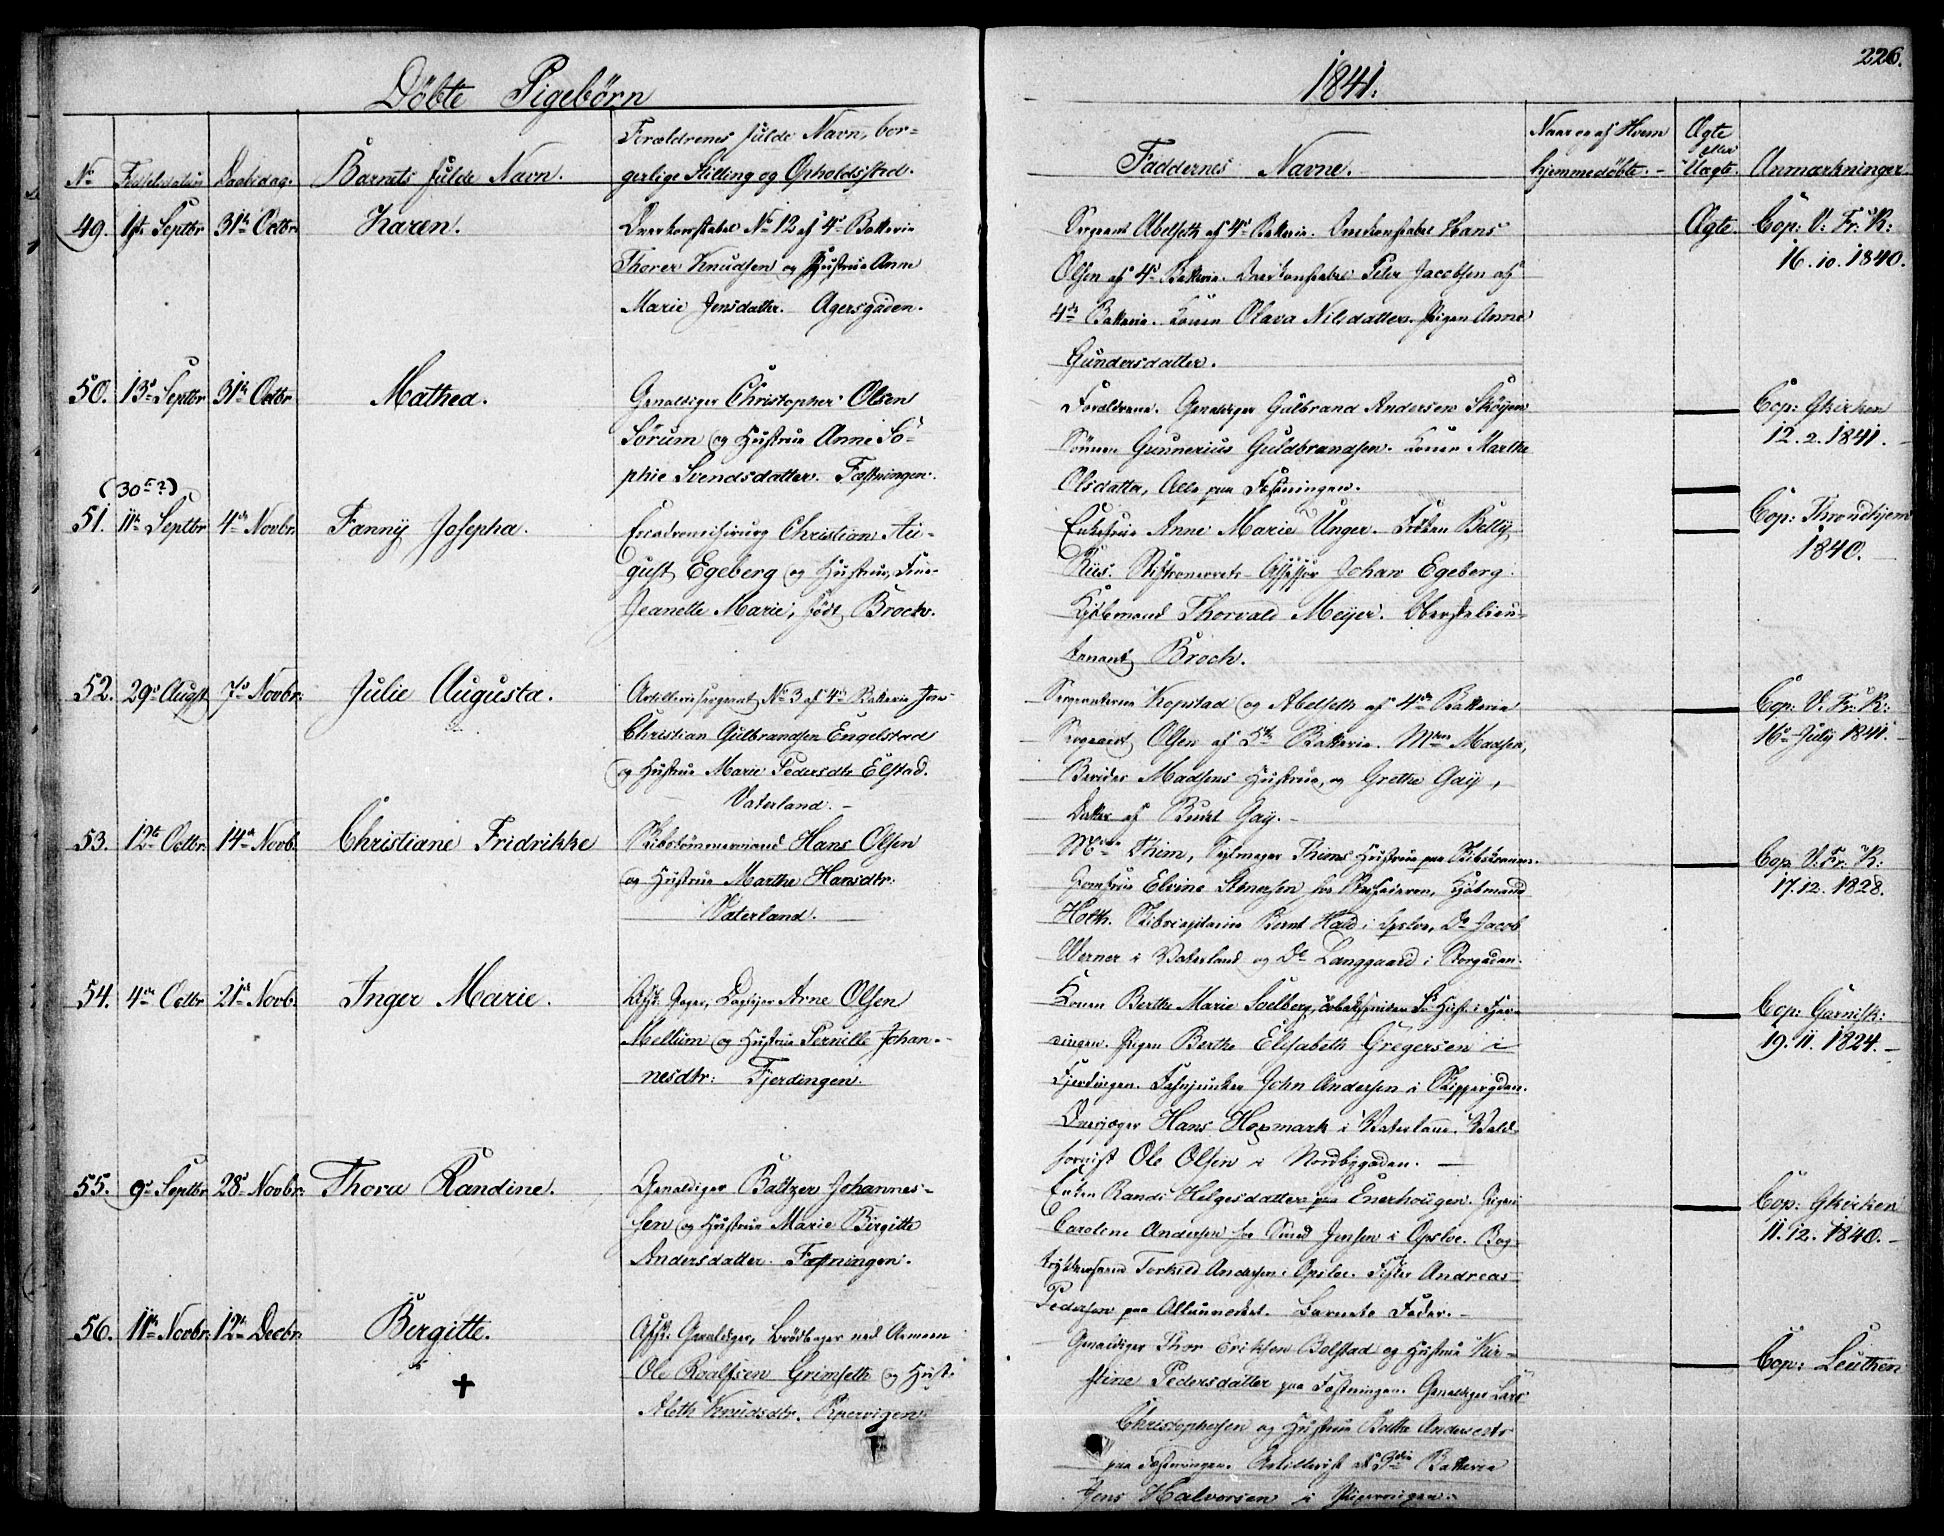 226.
Döbte Pigebörn
1841.
No
Födselsdatum
Daabsdag.
Barnets fulde Navn.
Forældrenes fulde Navn, bor-
gerlige Stilling og Opholdssted.
Faddernes Navne.
Naar og af Hvem
hjemmedöbte.
Ægte
eller
Uægte.
Anmærkninger
49. 1ste Septbr 31te Octbr. Karen.
Overkonstabel No 12 af 4de Batterie
Thorer Knudsen og Hustrue Anne
Marie Jensdatter. Agersgaden.
Sergeant Abelseth af 4de Batterie. Overkonstabel Hans
Olsen af 4de Batterie. Overkonstabel Peter Jacobsen af
4de Batterie. Konen Olava Nilsdatter. Pigen Anne
Gundersdatter.
Ægte
Cop: V: Fr: K:
16. 10. 1840.
50. 13de Septbr 31te Octbr Mathea.
Gevaldiger Christopher Olsen
Sörum og Hustrue Anne So-
phie Svendsdatter. Fæstningen.
Forældrene. Gevaldiger Gulbrand Andersen Sköyen
Sönnen Gunnerius Guldbrandsen. Konen Marthe
Olsdatter, Alle paa Fæstningen.
Cop: Gkirken
12. 2. 1841.
(30te?)
51. 11te Septbr 4de Novbr. Fanny Josepha.
Escadronschirurg Christian Au-
gust Egeberg og Hustrue
Jeanette Marie, född Brock.
Enkefrue Anne Marie Unger. Fröken Betty
Riis. Stiftsoverrets-Assessor Johan Egeberg.
Kjöbmand Thorvald Meyer. Oberstelieu-
tenant Broch.
Cop: Throndhjem
1840.
52. 29de Augst 7de Novbr: Julie Augusta.
Artilleriesergeant No 3 af 4de Batterie Jens
Christian Gulbrandsen Engelstad
og Hustrue Marie Pedersdtr Elstad.
Vaterland.
Sergeanterne Kopstad og Abelseth af 4de Batterie
Sergeant Olsen af 5te Batterie. Madsen,
Berider Madsens Hustrue, og Grethe Gay,
Datter af Gay.
Cop: V: Fr: K:
16de July 1841.
53. 12te Octbr. 14de Novb. Christiane Fridrikke
Skibstömmermand Hans Olsen
og Hustrue Marthe Hansdtr:
Vaterland.
Thim, Seilmager Thims Hustrue paa
Jomfrue Elvine Stenersen hos Kjöbmand
Hoth. Skibscapitaine Bernt Hald i Opsloe, Do Jacob
Werner i Vaterland og Do Langgaard i Storgaden.
Cop: V: Fr: K:
17. 12. 1828.
54. 4de Octbr 21de Novb. Inger Marie.
Afsk: Jæger, Arne Olsen
Mellum og Hustrue Pernille Johan-
nesdtr: Fjerdingen.
Konen Berthe Marie Soelberg, i Fjer-
dingen. Pigen Berthe Elisabeth Gregersen i
Fjerdingen. Fanejunker John Andersen i Skippergden.
Overjæger Hans Hopmark i Vaterland. Vald-
hornist Ole Olsen i Nordbygaden.
Cop: Garnisk:
19. 11. 1824.
55. 9de Septbr 28de Novbr: Thora Randine.
Gevaldiger Baltzer Johannes-
sen og Hustrue Marie Birgitte
Andersdatter. Fæstningen.
Enken Randi Helgesdatter paa Enerhougen. Pigen
Caroline Andersen hos Smed Jensen i Opsloe. Bog-
trykkersvend Torkild Andersen i Opsloe. Andreas
Pedersen paa Alluunverket. Barnets Fader.
Cop: Gkirken
11. 12. 1840.
56. 11te Novbr: 12te Decbr. Bergitte.
Afsk: Gevaldiger, Brödbager ved Armeen
Ole Roalfsen Grimseth og Hust:
Aleth Knudsdtr. Pipervigen.
Gevaldiger Thor Eriksen Bolstad og Hustrue Kir-
stine Pedersdatter paa Fæstningen. Gevaldiger Lars
Christophersen og Hustrue Berthe
paa Fæstningen. Artillerist af 3die Batterie
Jens Halvorsen i Pipervigen.
Cop: Leuthen